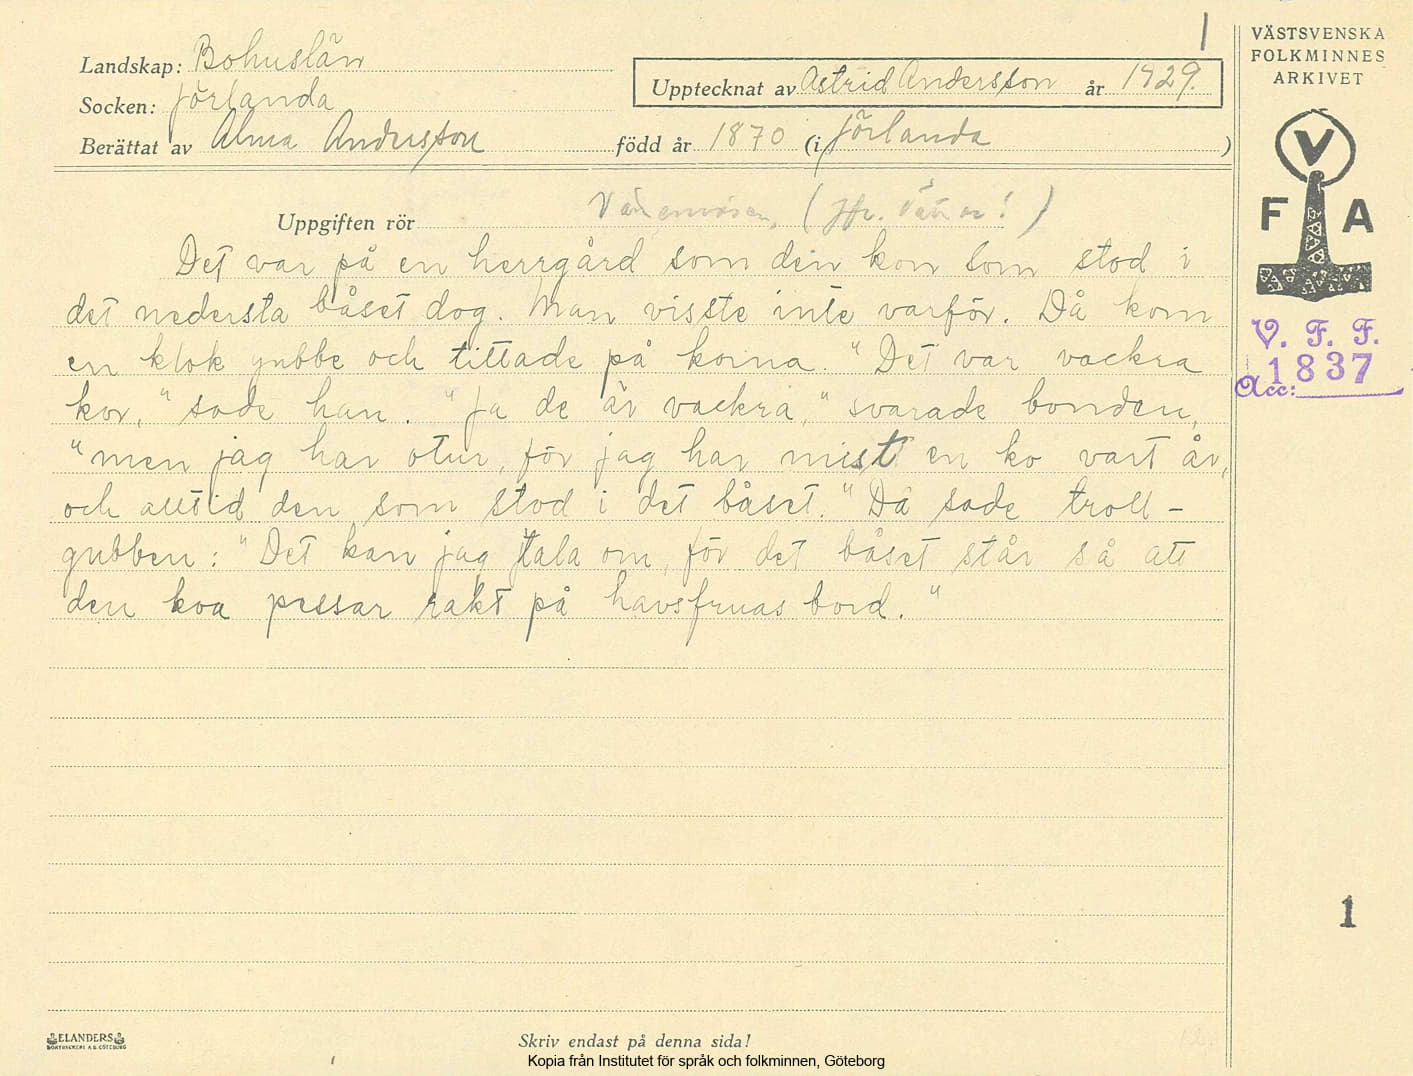 1
VÄSTSVENSKA
FOLKMINNES
ARKIVET
Landskap: Bohuslän
Socken: Jörlanda
Upptecknat av Astrid Andersson år 1929.
Berättat av Alma Andersson född år 1870 (i Jörlanda )
V
F A
Uppgiften rör (jfr. !)
Det var på en herrgård som den kon som stod i
det nedersta båset dog. Man visste inte varför. Då kom
en klok gubbe och tittade på korna. "Det var vackra
kor," sade han. "Ja de är vackra," svarade bonden,
"men jag har otur, för jag har mist en ko vart år,
och alltid den som stod i det båset." Då sade troll-
gubben: "Det kan jag tala om, för det båset står så att
den koa pessar rakt på havsfruas bord."
V. F. F.
Acc: 1837
1
ELANDERS
BOKTRYCKERI A.B. GÖTEBORG
Skriv endast på denna sida!
Kopia från Institutet för språk och folkminnen, Göteborg